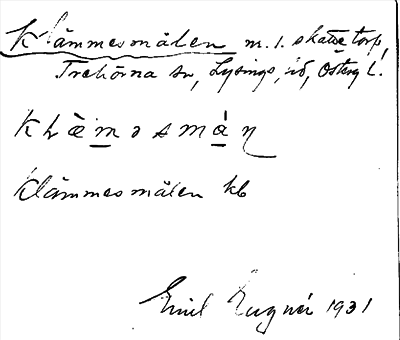 Klämmesmålen m. 1. skatte torp,
Trehörna sn, Lysings, hd, Österg l.
Klämmesmålen kb
Emil 1931